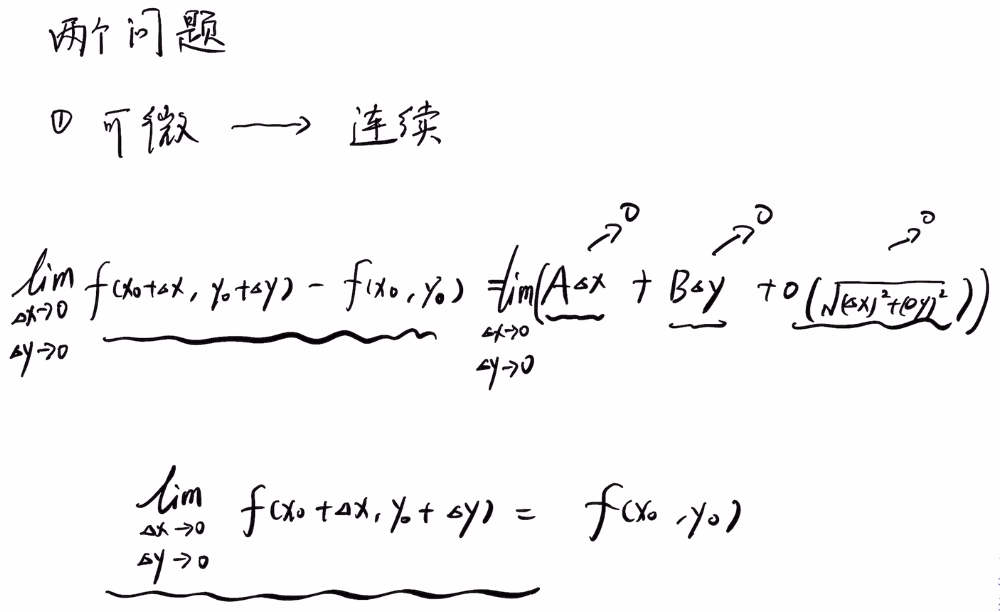 两个问题
① 可微 → 连续
lim_{Δx→0, Δy→0} f(x₀+Δx, y₀+Δy) - f(x₀, y₀) = lim_{Δx→0, Δy→0} (AΔx + BΔy + o(√((Δx)²+(Δy)²))) →0 →0 →0
lim_{Δx→0, Δy→0} f(x₀+Δx, y₀+Δy) = f(x₀, y₀)